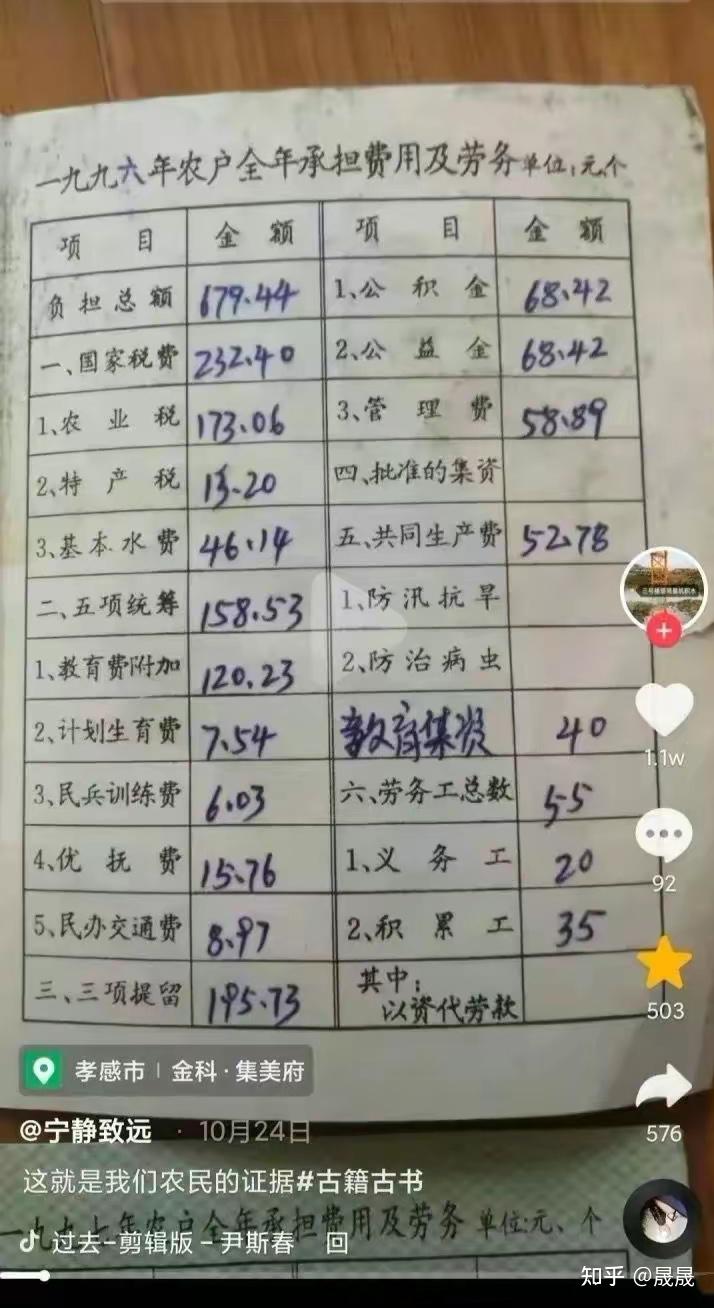 一九九六年农户全年承担费用及劳务 单位:元、个
项 目 金 额 项 目 金 额
负担总额 679.44 1、公 积 金 68.42
一、国家税费 232.40 2、公 益 金 68.42
1、农 业 税 173.06 3、管 理 费 58.89
2、特 产 税 13.20 四、批准的集资
3、基本水费 46.14 五、共同生产费 52.78
二、五项统筹 158.53 1、防汛抗旱
1、教育费附加 120.23 2、防治病虫
2、计划生育费 7.54 教育集资 40
3、民兵训练费 6.03 六、劳务工总数 55
4、优 抚 费 15.76 1、义 务 工 20
5、民办交通费 8.97 2、积 累 工 35
三、三项提留 195.73 其中:
以资代劳款
1.1w
92
503
576
孝感市 | 金科·集美府
@宁静致远 · 10月24日
这就是我们农民的证据#古籍古书
一九九七年农户全年承担费用及劳务 单位:元、个
过去-剪辑版 - 尹斯春 回
知乎 @晟晟